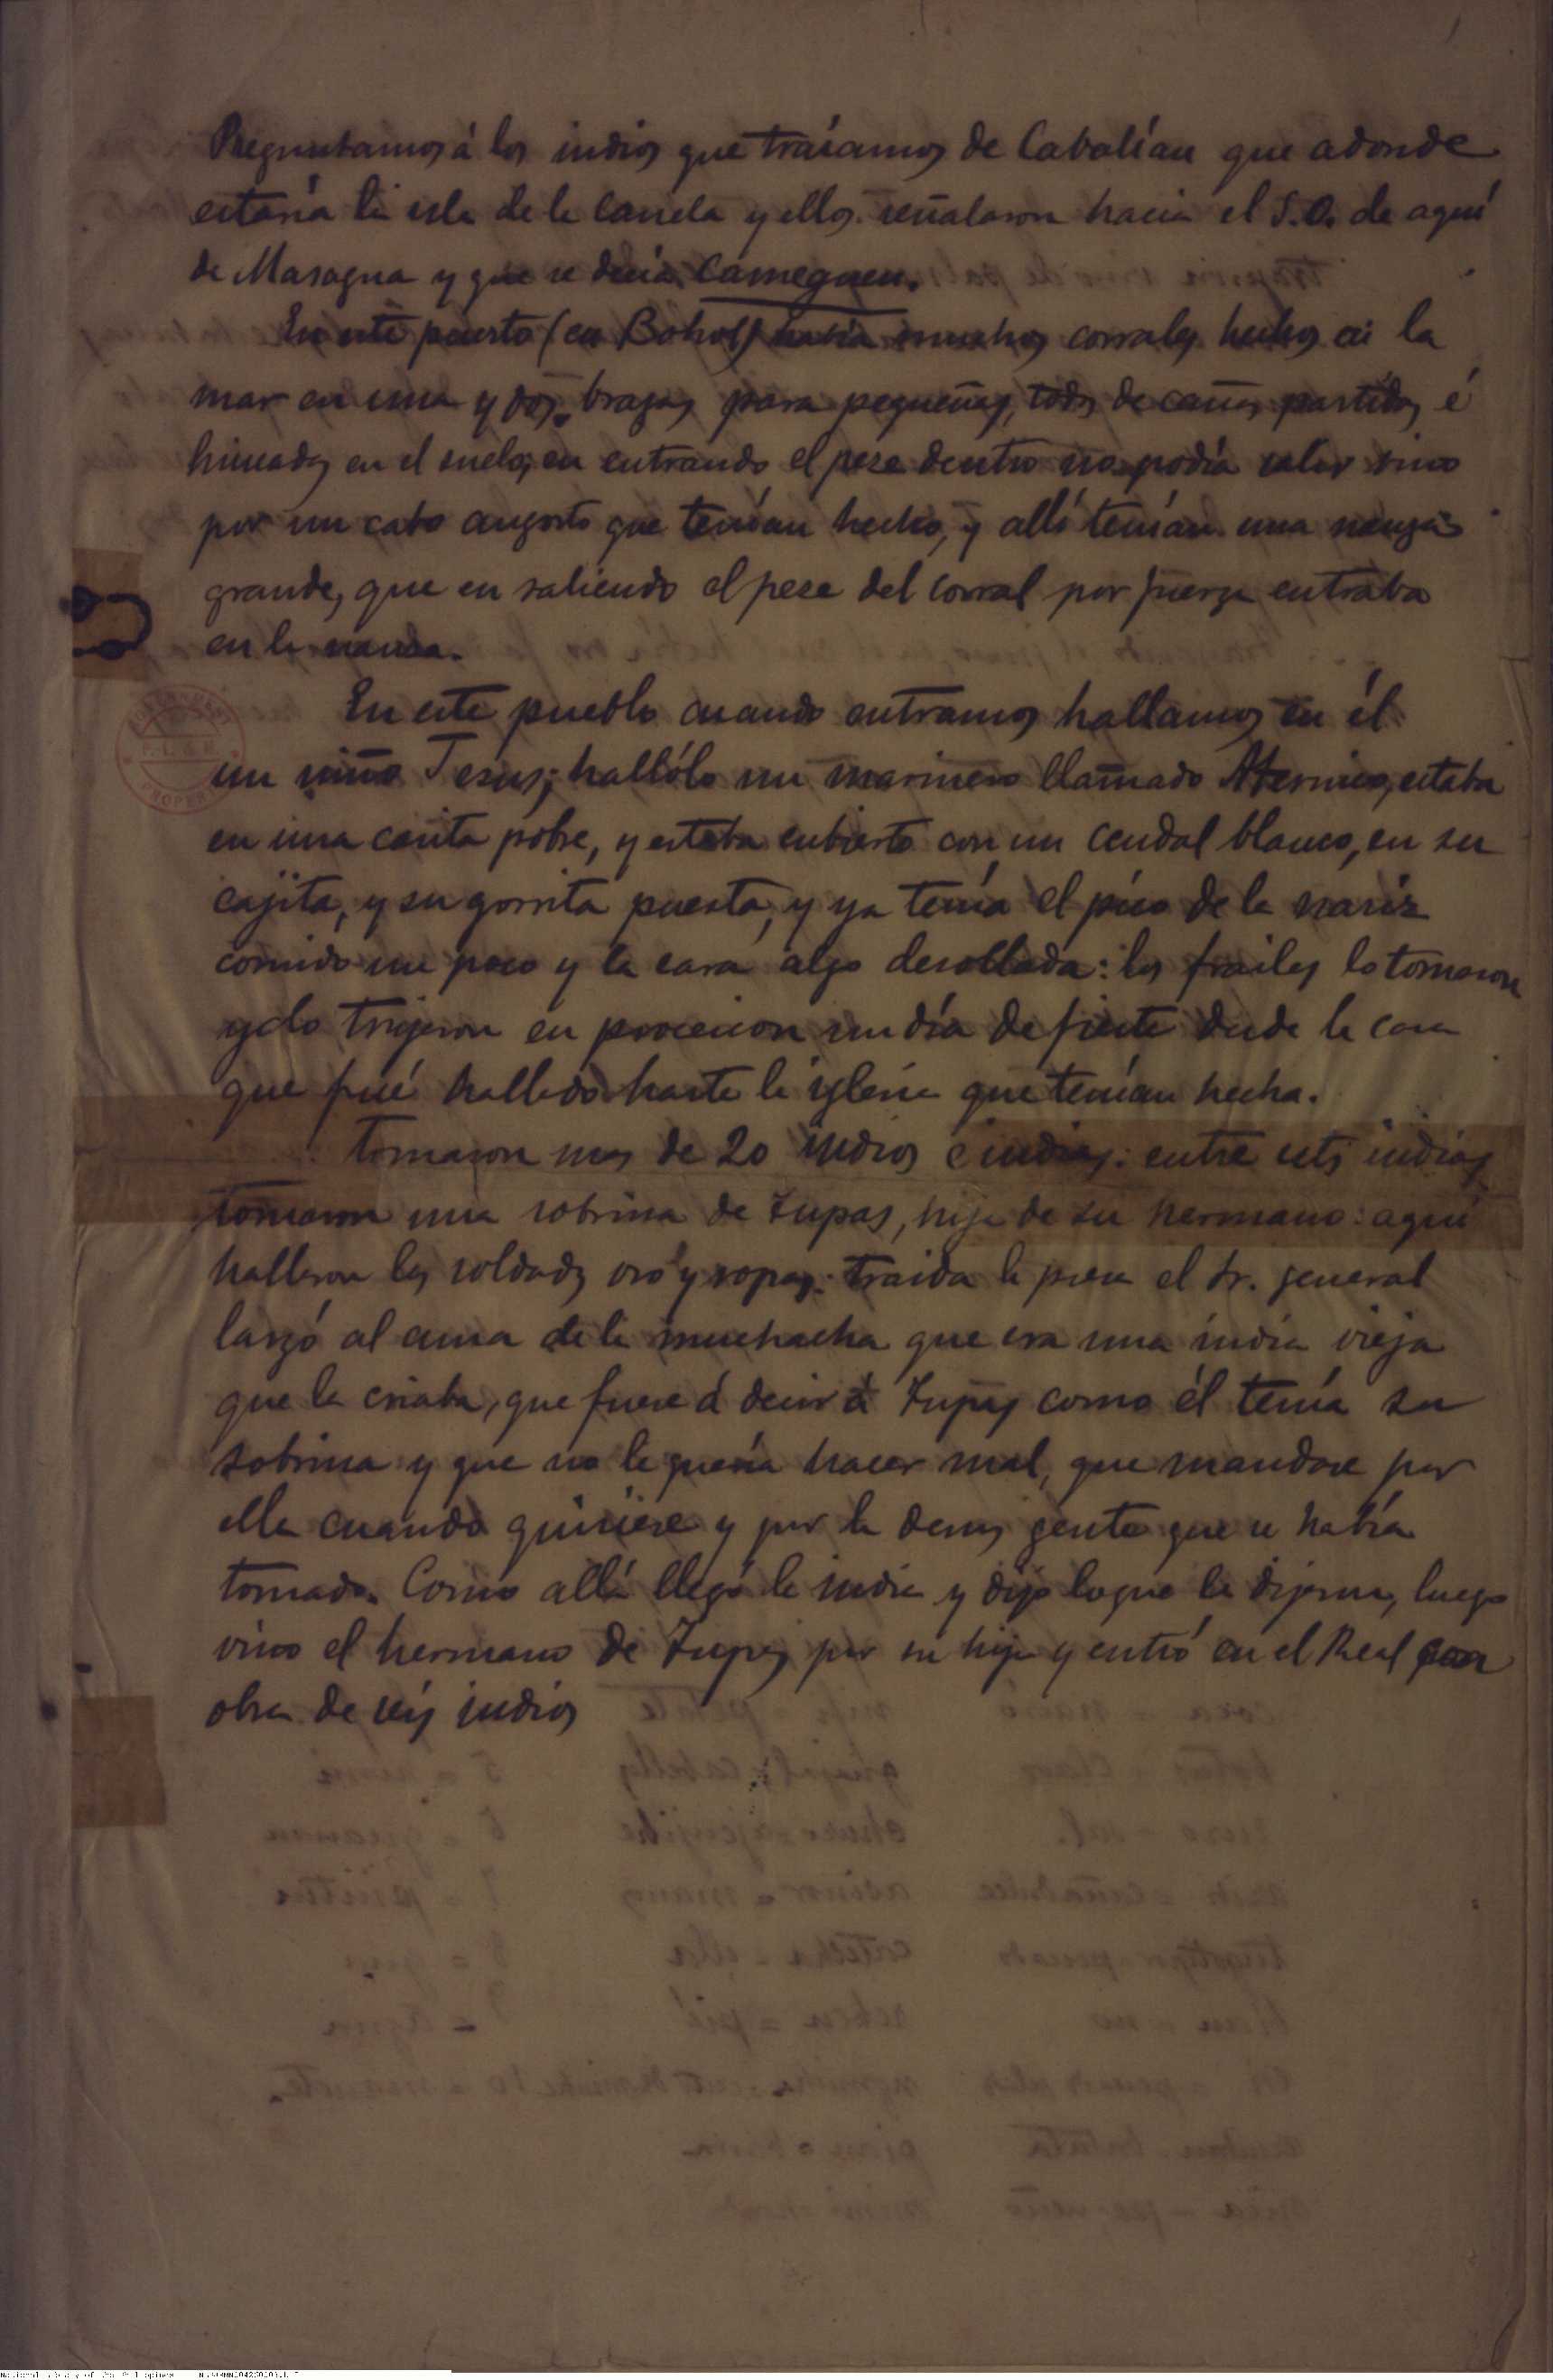 Preguntamos á los indios que traíamos de Cabalían que adonde
estaría la isla de la Canela y ellos señalaron hacia el S.O. de aquí
de Masagua y que se decía Cameguen.
En este puerto (en Bohol) había muchos corrales hechos en la
mar en una y dos brazas para pequeñas, todos de cañas partidas é
hincados en el suelo, en entrando el pexe dentro no podía salir sino
por un cabo angosto que tenían hecho, y allí tenían una nanza
grande, que en saliendo el pexe del corral por fuerza entraba
en la nanza.
En este pueblo cuando entramos hallamos en él
un niño Jesus; hallólo un marinero llamado estaba
en una casita pobre, y estaba cubierto con un cendal blanco, en su
cajita, y su gorrita puesta, y ya tenía el pico de la nariz
comido un poco y la cara algo desollada: los frailes lo tomaron
y lo trujeron en procesion un día de fiesta desde la casa
que fué hallado hasta la iglesia que tenían hecha.
Tomaron mas de 20 indios é indias: entre estos indios
tomaron una sobrina de Tupas, hija de su hermano: aquí
hallaron los soldados oro y ropas. traida la presa el Sr. general
lanzó al ama de la muchacha que era una india vieja
que la criaba, que fuese á decir á Tupas como él tenía su
sobrina y que no le quería hacer mal, que mandase por
ella cuando quisiese y por la demas gente que se había
tomado. Como allá llegó la india y dijo loque la dijeron, luego
vino el hermano de Tupas por su hija y entró en el Real con
obra de seis indios